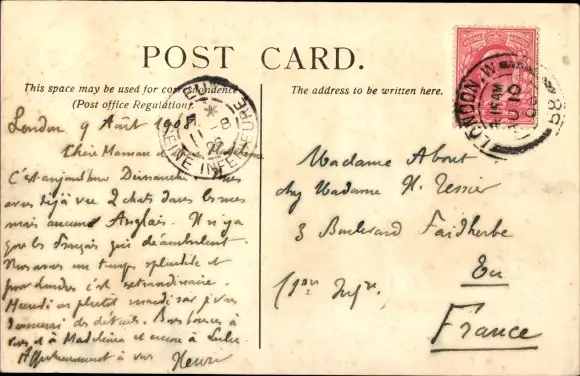 POST CARD.
This space may be used for correspondence
(Post office Regulation).
The address to be written here.
London 9 Août 1908
Chère Maman et Madeleine
C'est aujourd'hui Dimanche Nous
avons déjà vu 2 chats dans les rues
mais aucun Anglais. Il n'y a
que les Français qui déambulent.
Nous avons un temps splendide et
pour Londres c'est extraordinaire.
Mardi ou plutôt mardi soir je vous
donnerai des détails. Bons baisers à
vous, et à Madeleine et encore à Lulu.
Affectueusement à vous Henri
Madame About
chez Madame H. Tessier
3 Boulevard Faidherbe
Eu
(Sne Infre.
France
LONDON. W.
AU 10
08
SEINE INFERIEURE
11 -8